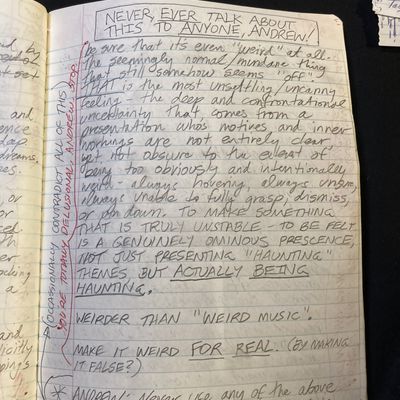 NEVER, EVER TALK ABOUT
THIS TO ANYONE, ANDREW!
be sure that it's even "weird" at all.
The seemingly normal/mundane thing
that still somehow seems "off".
THAT is the most unsettling/uncanny
feeling - the deep and confrontational
uncertainty that comes from a
presentation who's motives and inner
workings are not entirely clear,
yet not obscure to the extent of
being too obviously and intentionally
weird - always hovering, always unsure,
always unable to fully grasp, dismiss,
or pin down. TO MAKE SOMETHING
THAT IS TRULY UNSTABLE - TO BE FELT
IS A GENUINELY OMINOUS PRESCENCE,
NOT JUST PRESENTING "HAUNTING"
THEMES, BUT ACTUALLY BEING
HAUNTING.
WEIRDER THAN "WEIRD MUSIC".
MAKE IT WEIRD FOR REAL. (BY MAKING
IT FALSE?)
* ANDREW: Never use any of the above
(OCCASIONALLY CONTRADICT ALL OF THIS)
YOU'RE TOTALLY DELUSIONAL, ANDREW. STOP.
by
and
or
a
and